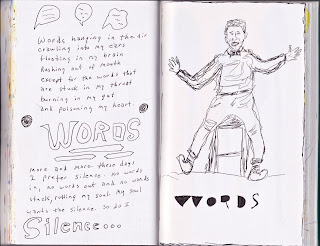 Words hanging in the air
crawling into my ears
floating in my brain
Rushing out of mouth
except for the words that
are stuck in my throat
burning in my gut
and poisoning my heart.
WORDS
more and more these days
I prefer silence. No words
in, no words out and no words
stuck, rotting my soul. My soul
wants the silence. So do I
Silence...
WORDS